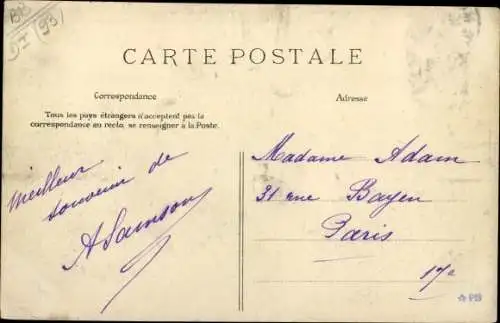 BB
DI (93)
CARTE POSTALE
Correspondance
Tous les pays étrangers n'acceptent pas la
correspondance au recto, se renseigner à la Poste.
meilleur
souvenir de
A Samson
Adresse
Madame Adam
31 rue Bayen
Paris
17e
PB